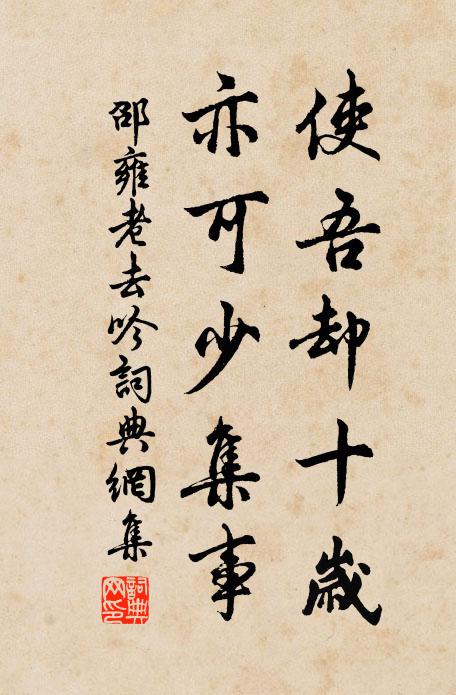 使吾却十歲
亦可少集事
邵雍老去吟詞典網集
詞典網印